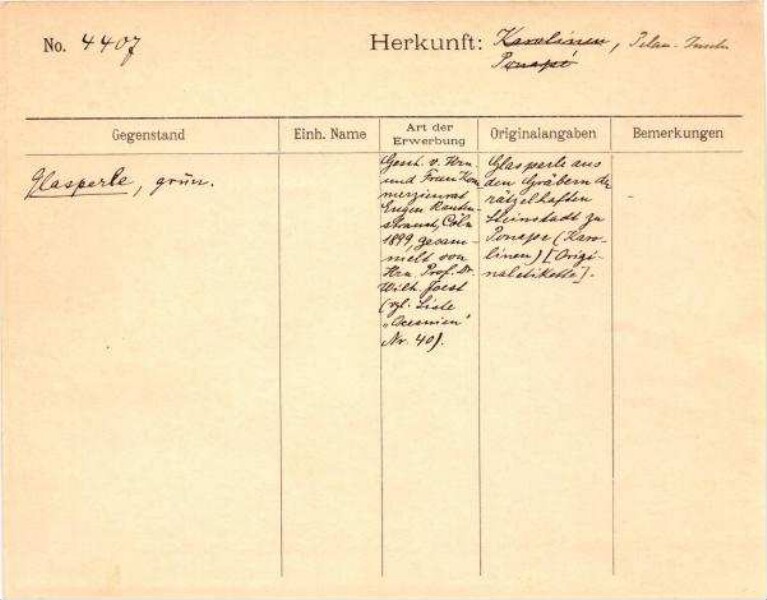 No. 4407
Herkunft: Karolinen, Pelau-Inseln
Ponapé
Gegenstand
Einh. Name
Art der
Erwerbung
Originalangaben
Bemerkungen
Glasperle, grün.
Gesch. v. Hrn.
und Frau Kom
merzienrat
Eugen Rauten-
strauch, Cöln
1899, gesam-
melt von
Hrn. Prof. Dr.
Wilh. Joest
(vgl. Liste
„Oceanien"
Nr. 40).
Glasperle aus
den Gräbern der
rätzelhaften
Steinstadt zu
Ponape (Karo-
linen) [Origi-
naletikette].